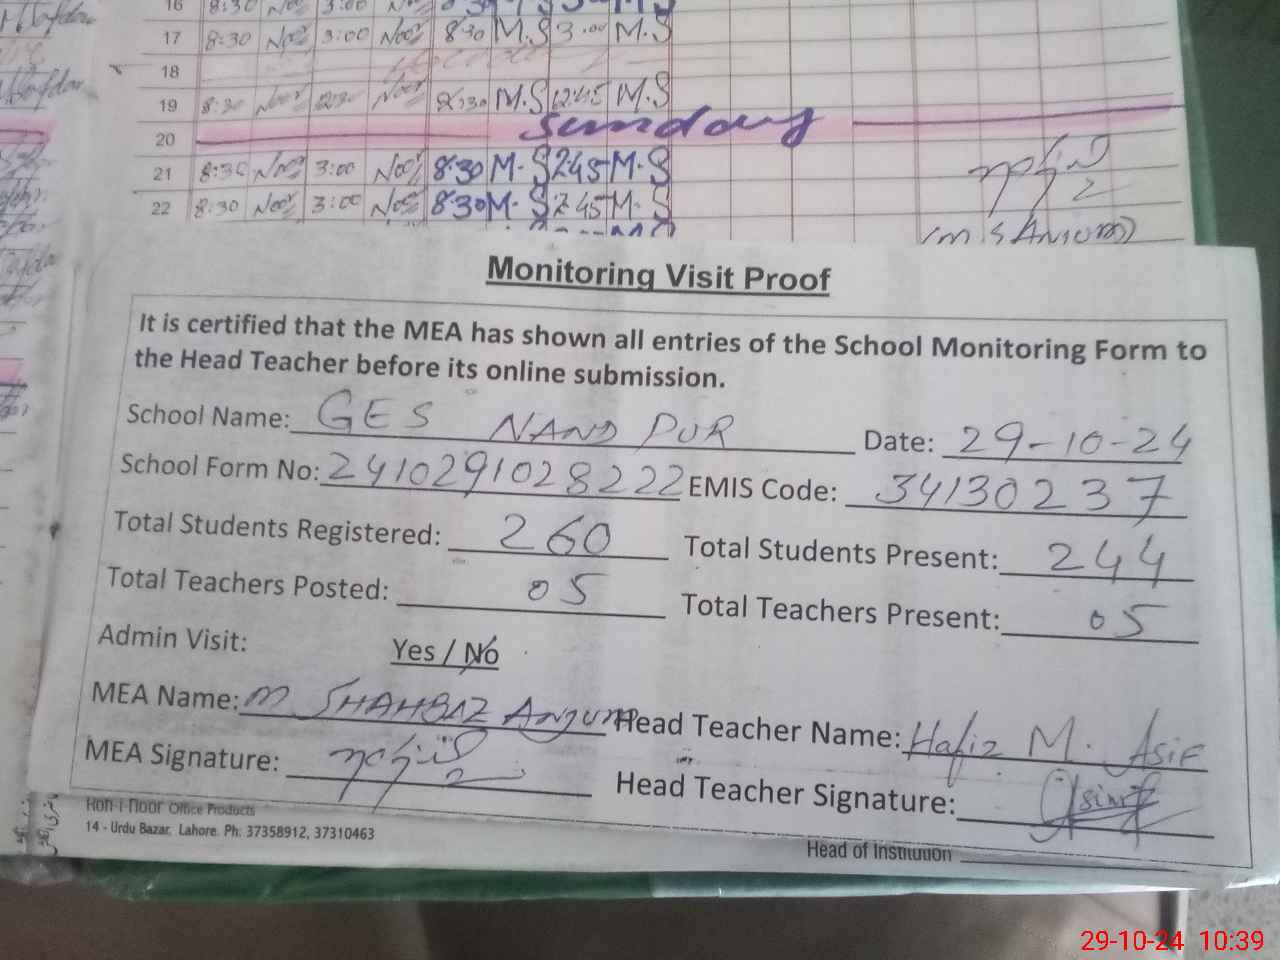 16 8:30 3:00
17 8:30 Noor 3:00 Noor 8:30 M.S 3:00 M.S
18
19 8:30 Noor 2:30 Noor 8:30 M.S 12:45 M.S
20 Sunday
21 8:30 Noor 3:00 Noor 8:30 M.S 2:45 M.S
22 8:30 Noor 3:00 Noor 8:30 M.S 2:45 M.S
(M S ANJUM)
Monitoring Visit Proof
It is certified that the MEA has shown all entries of the School Monitoring Form to
the Head Teacher before its online submission.
School Name: GES NAND PUR Date: 29-10-24
School Form No: 2410291028222 EMIS Code: 34130237
Total Students Registered: 260 Total Students Present: 244
Total Teachers Posted: 05 Total Teachers Present: 05
Admin Visit: Yes / No
MEA Name: M SHAHBAZ ANJUM Head Teacher Name: Hafiz M. Asif
MEA Signature: Head Teacher Signature:
Koh-i-noor Office Products
14 - Urdu Bazar, Lahore. Ph: 37358912, 37310463
Head of Institution
29-10-24 10:39